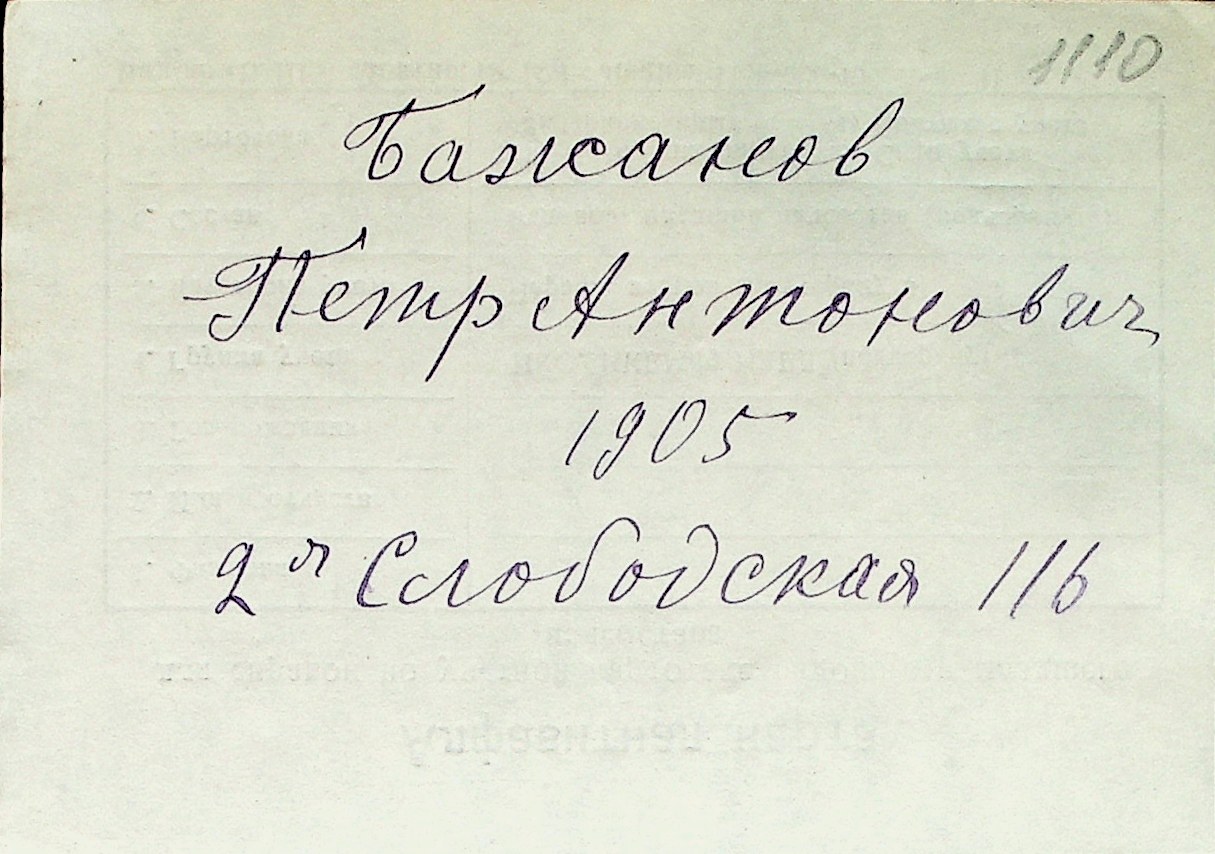 1110
Бажанов
Петр Антонович
1905
2я Слободская 116